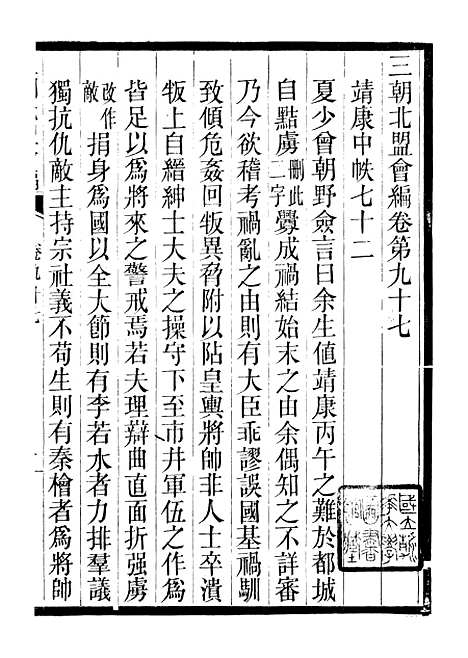 三朝北盟會編卷第九十七
靖康中帙七十二
夏少曾朝野僉言曰余生值靖康丙午之難於都城
自點虜刪此二字釁成禍結始末之由余偶知之不詳審
乃今欲稽考禍亂之由則有大臣乖謬誤國基禍馴
致傾危姦回叛異脅附以阽皇輿將帥非人士卒潰
叛上自縉紳士大夫之操守下至市井軍伍之作爲
皆足以爲將來之警戒焉若夫理辯曲直面折强虜
改作敵捐身爲國以全大節則有李若水者力排羣議
獨抗仇敵主持宗社義不苟生則有秦檜者爲將帥
卷九十七
一